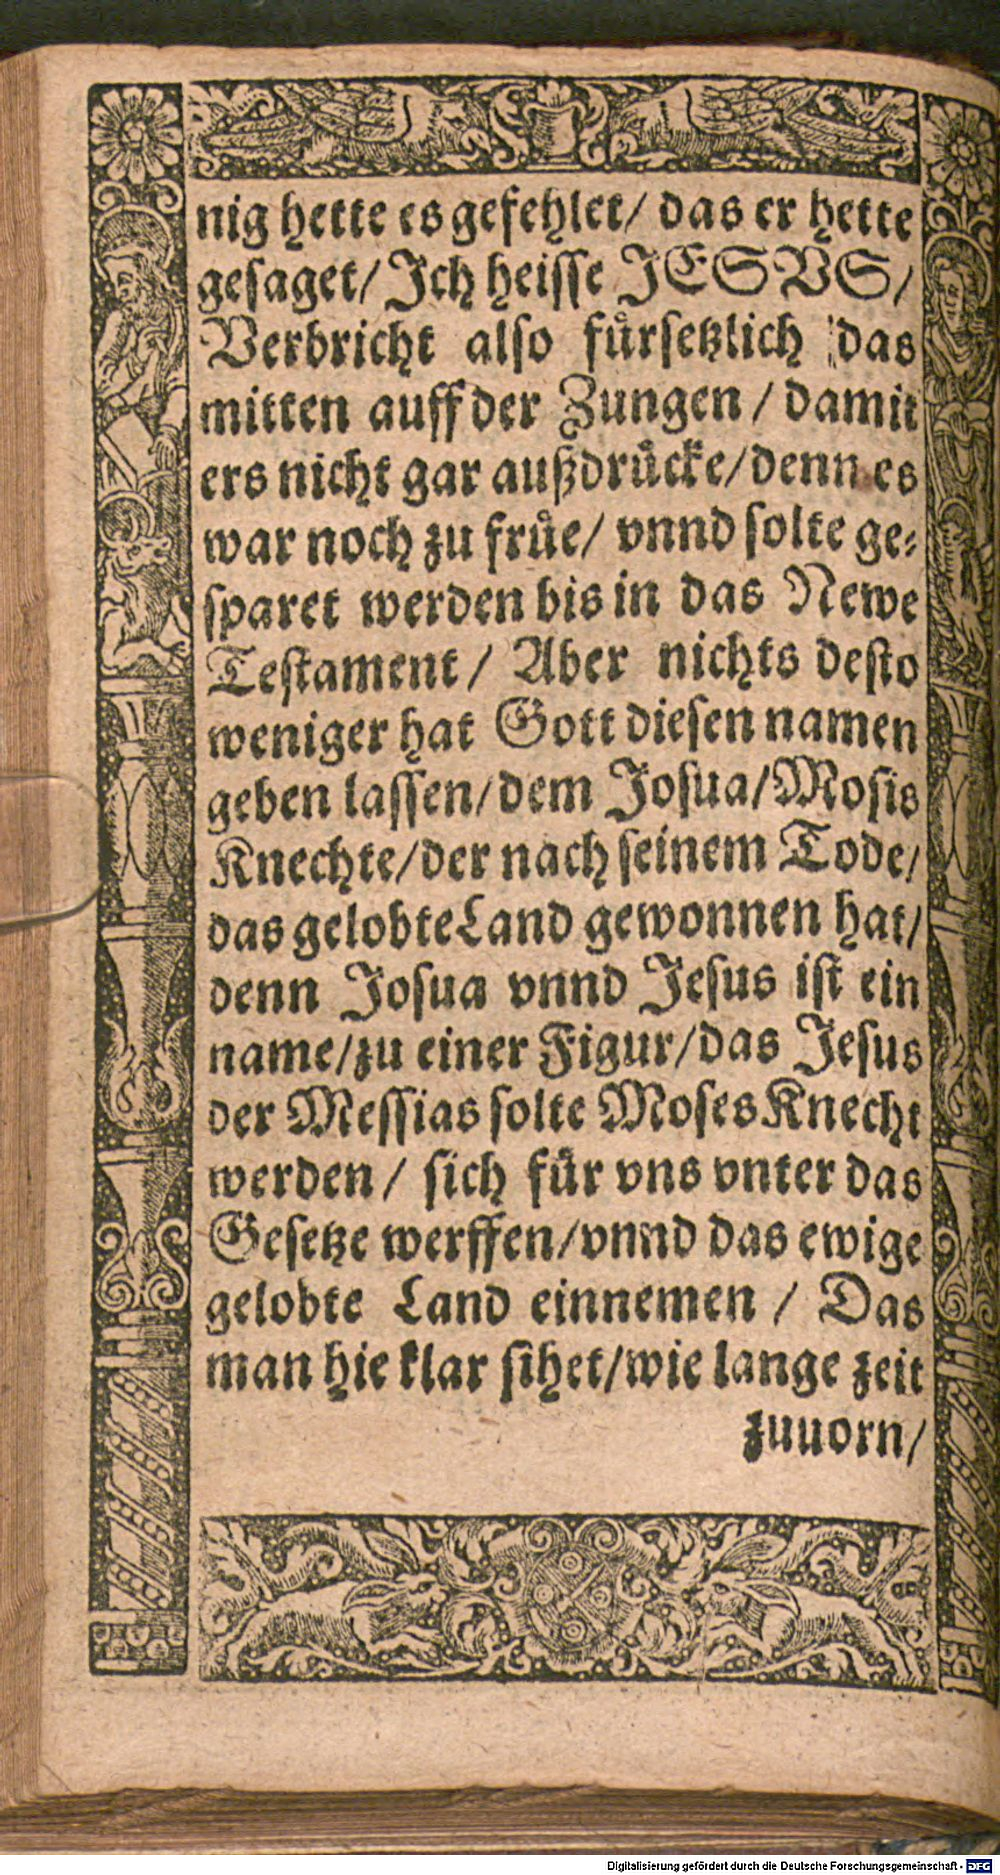 nig hette es gefehlet/ das er hette
gesaget/ Ich heisse JESVS/
Verbricht also fürsetzlich das
mitten auff der Zungen / damit
ers nicht gar außdrücke/denn es
war noch zu früe/ vnnd solte ge-
sparet werden bis in das Newe
Testament / Aber nichts desto
weniger hat Gott diesen namen
geben lassen/dem Josua/Mosis
Knechte/der nach seinem Tode/
das gelobte Land gewonnen hat/
denn Josua vnnd Jesus ist ein
name/zu einer Figur/das Jesus
der Messias solte Moses Knecht
werden / sich für vns vnter das
Gesetze werffen/vnnd das ewige
gelobte Land einnemen / Das
man hie klar sihet/wie lange zeit
zuuorn/
Digitalisierung gefördert durch die Deutsche Forschungsgemeinschaft - DFG